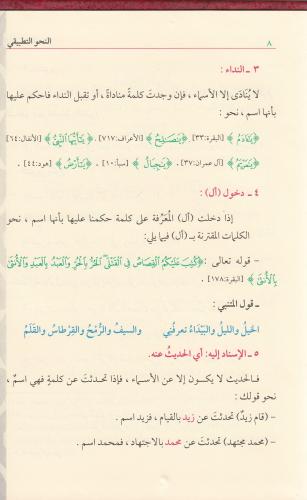 ٨ النحو التطبيقي
٣ - النداء :
لا يُنَادَى إلا الأسماء ، فإن وجدتَ كلمةً مناداةً ، أو تقبل النداء فاحكم عليها
بأنها اسم ، نحو :
﴿يَـَٔادَمُ﴾ [البقرة:٣٣]. ﴿يَصَـٰلِحُ﴾ [الأعراف:٧١٧]. ﴿يَـٰٓأَيُّهَا ٱلنَّبِىُّ﴾ [الأنفال:٦٤]
﴿يَـٰمَرْيَمُ﴾ [آل عمران:٣٧]. ﴿يَـٰجِبَالُ﴾ [سبأ:١٠] . ﴿يَـٰٓأَرْضُ﴾ [هود:٤٤].
٤ - دخول (أل) :
إذا دخلت (أل) المُعَرِّفة على كلمة حكمنا عليها بأنها اسم ، نحو
الكلمات المقترنة بـ(أل) فيما يلي:
- قوله تعالى :﴿كُتِبَ عَلَيْكُمُ ٱلْقِصَاصُ فِى ٱلْقَتْلَى ٱلْحُرُّ بِٱلْحُرِّ وَٱلْعَبْدُ بِٱلْعَبْدِ وَٱلْأُنثَىٰ
بِٱلْأُنثَىٰ﴾ [البقرة:١٧٨].
- قول المتنبي :
الخيلُ والليلُ والبَيْدَاءُ تعرفُني والسيفُ والرُّمْحُ والقِرْطاسُ والقَلَمُ
٥ - الإسناد إليه: أي الحديثُ عنه.
فـالحديث لا يكـون إلا عن الأسمـاء ، فإذا تحـدثتَ عن كلمةٍ فهي اسمٌ ،
نحو قولك :
- (قام زيدٌ) تحدثتَ عن زيد بالقيام ، فزيد اسم .
- (محمد مجتهد) تحدثتَ عن محمد بالاجتهاد ، فمحمد اسم .